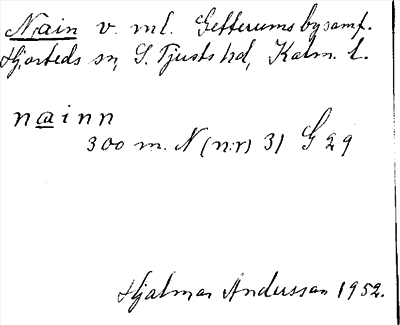 Nain v. ml. Getterums bysamf.
Hjorteds sn, S. Tjusts hd, Kalm. l.
nainn
300 m. N (n:r) 31 G 29
Hjalmar Andersson 1952.